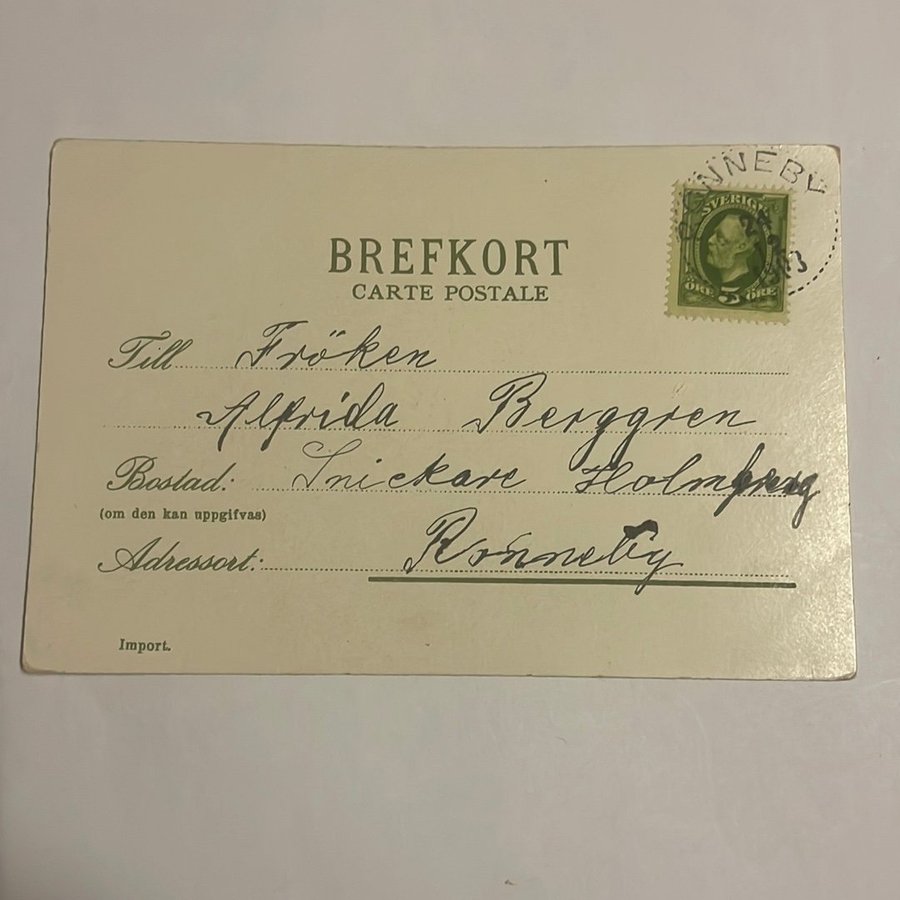 RONNEBY
1903
SVERIGE
ÖRE 5 ÖRE
BREFKORT
CARTE POSTALE
Till Fröken
Alfrida Berggren
Bostad: Snickare Holmberg
(om den kan uppgifvas)
Adressort: Ronneby
Import.